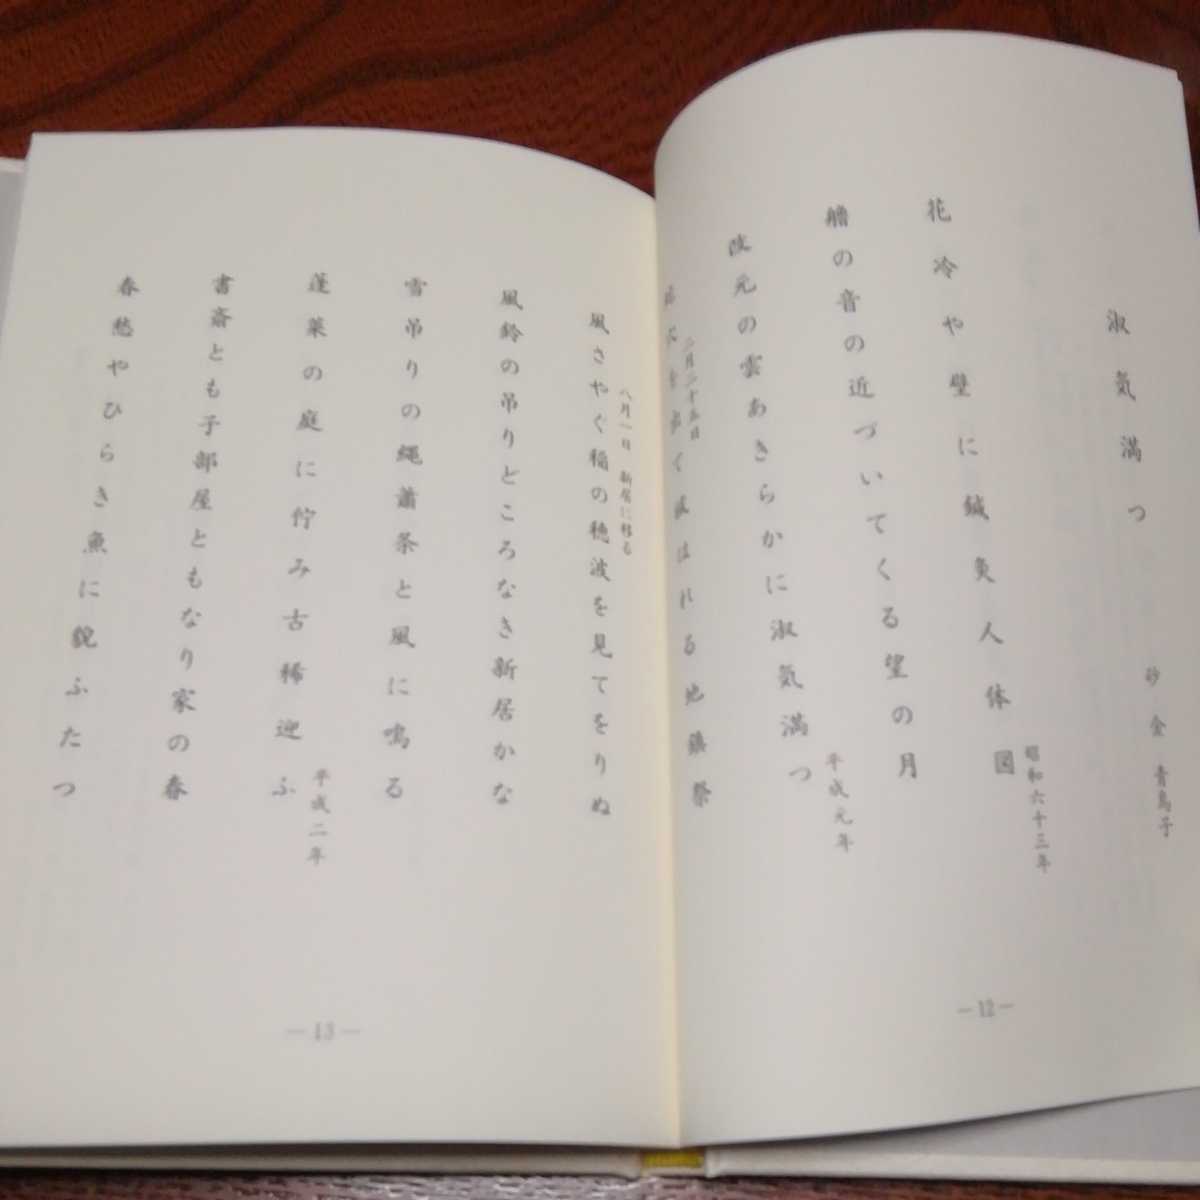 淑気満つ
砂金青鳥子
花冷や壁に鍼灸人体図
昭和六十三年
艪の音の近づいてくる望の月
波元の雲あきらかに淑気満つ
平成元年
二月二十五日
はれる地鎮祭
―12―
八月一日　新居に移る
風さやぐ稲の穂波を見てをりぬ
風鈴の吊りどころなき新居かな
雪吊りの縄蕭条と風に鳴る
蓬莱の庭に佇み古稀迎ふ
平成二年
書斎とも子部屋ともなり家の春
春愁やひらき魚に貌ふたつ
―13―